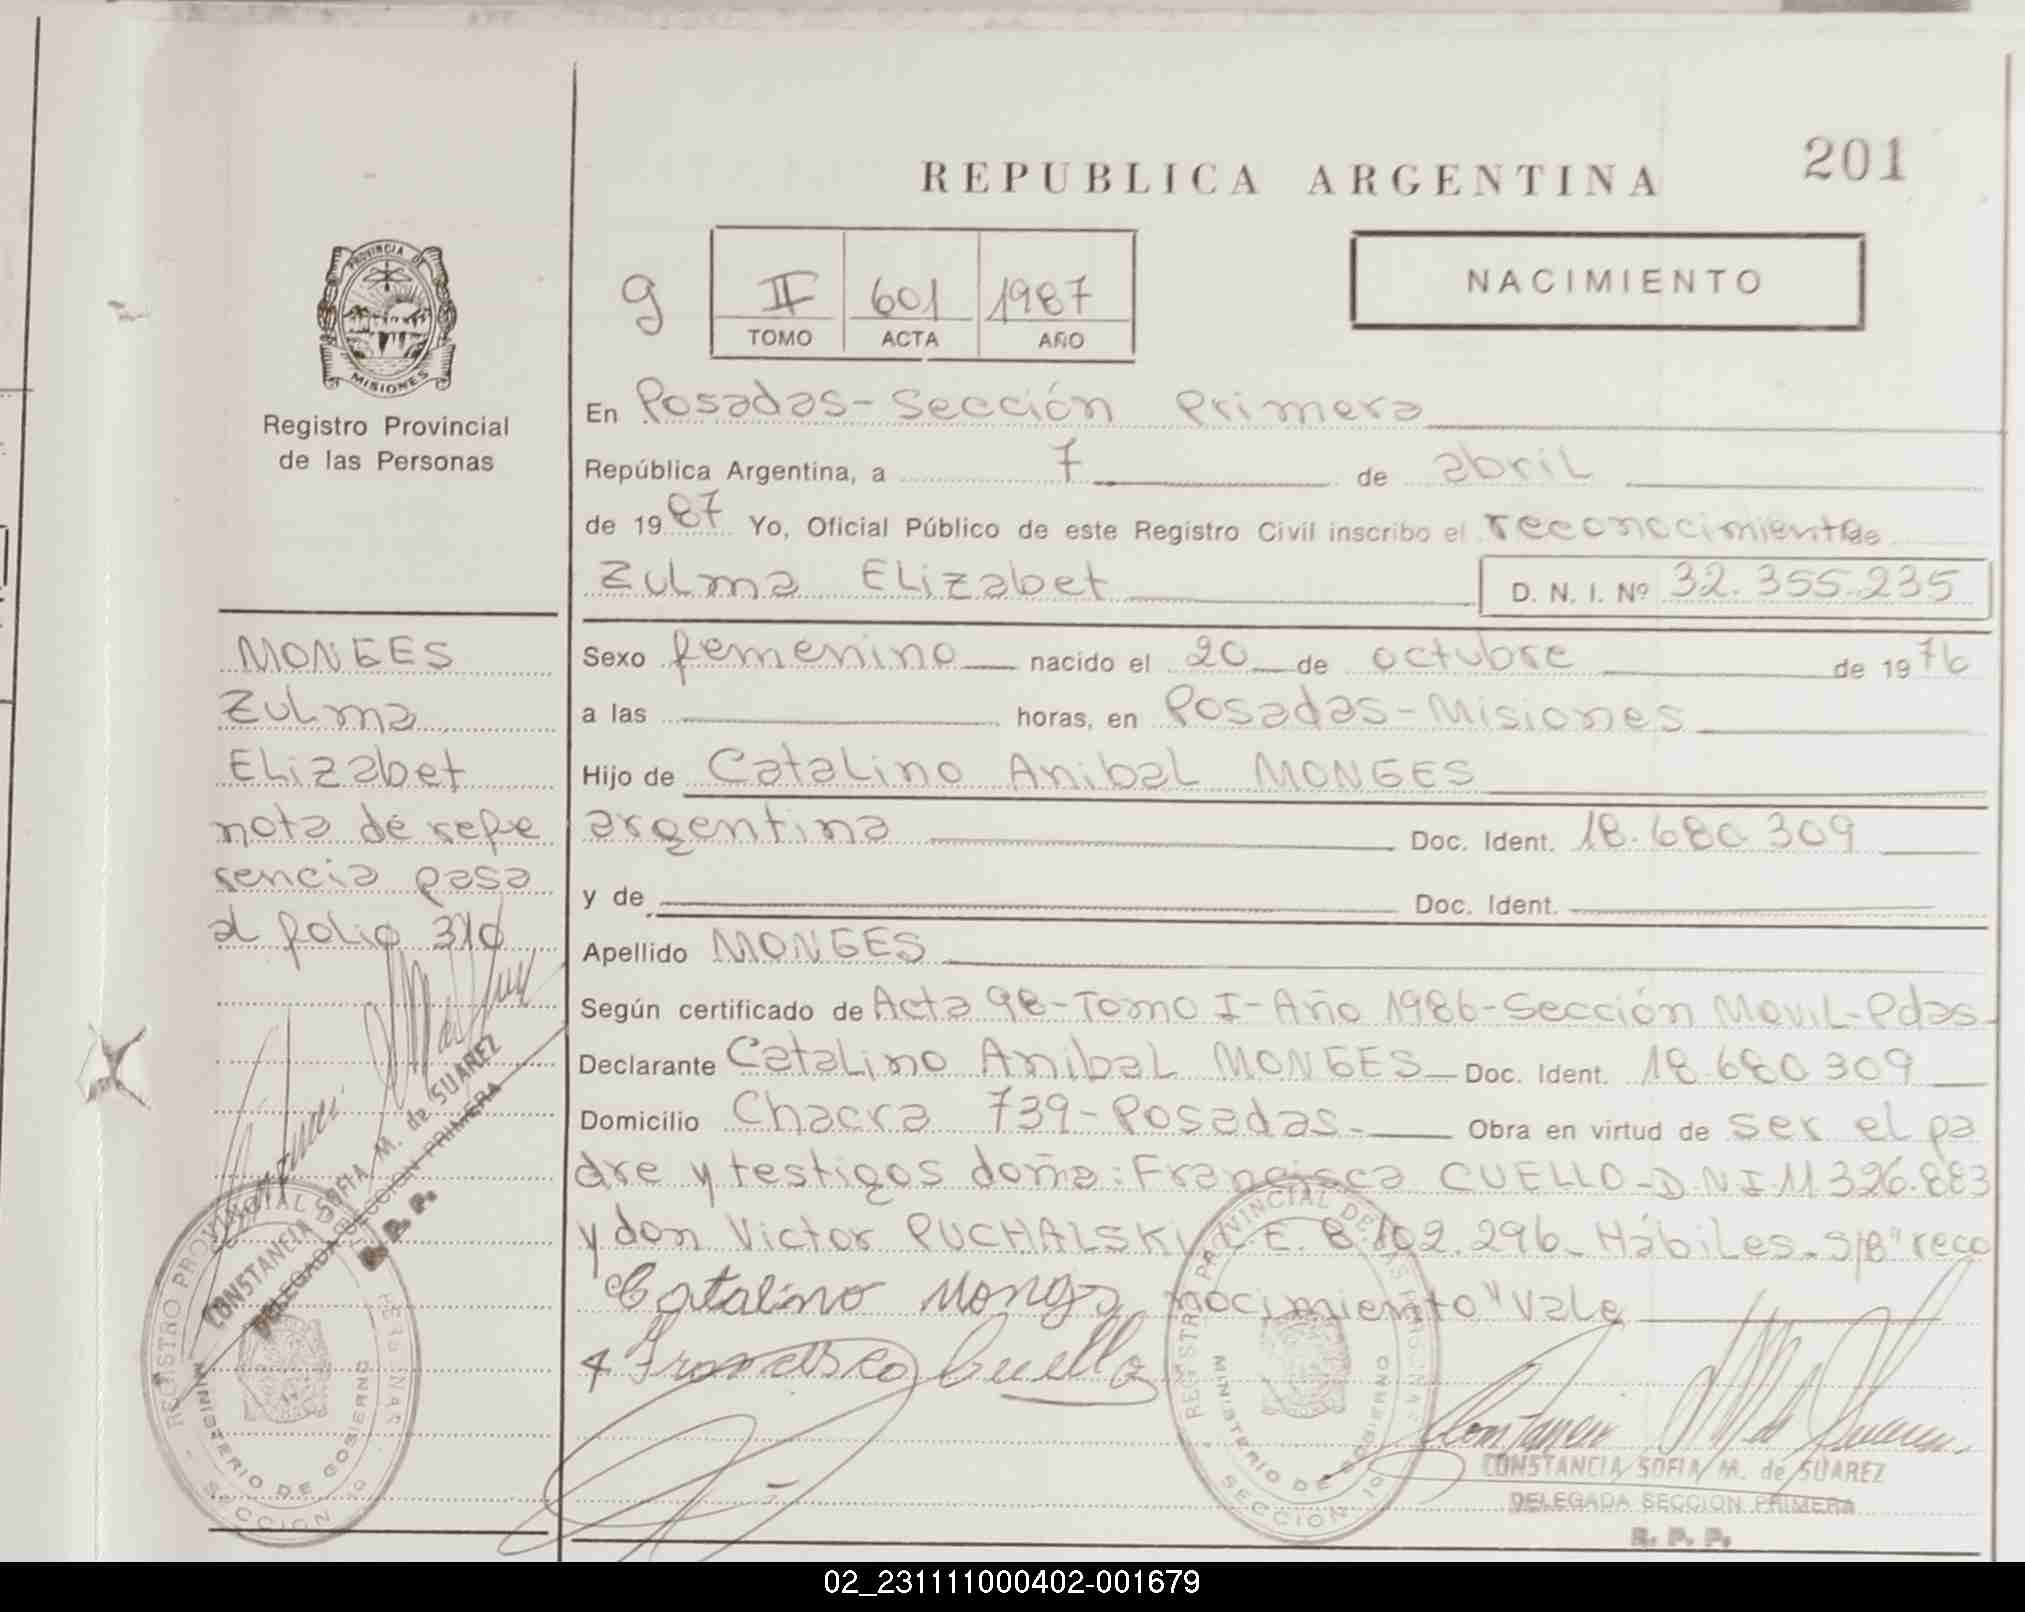 REPUBLICA ARGENTINA
201
PROVINCIA DE
MISIONES
Registro Provincial
de las Personas
g
II 601 1987
TOMO ACTA AÑO
NACIMIENTO
En Posadas-Sección Primera
República Argentina, a 7 de abril
de 1987 Yo, Oficial Público de este Registro Civil inscribo el reconocimiento de
Zulma Elizabet D. N. I. Nº 32.355.235
Sexo femenino nacido el 20 de octubre de 1976
a las horas, en Posadas-Misiones
Hijo de Catalino Anibal MONGES
argentina Doc. Ident. 18.680.309
y de Doc. Ident.
Apellido MONGES
Según certificado de Acta 98-Tomo I-Año 1986-Sección Movil-Pdas-
Declarante Catalino Anibal MONGES Doc. Ident. 18.680.309
Domicilio Chacra 739-Posadas- Obra en virtud de ser el pa
dre y testigos doña: Francisca CUELLO-D.N.I 11.326.883
y don Victor PUCHALSKI L.E. 8.102.296- Hábiles- S/B "reco
Catalino Monges nocimiento" Vale
Francisco Cuello
CONSTANCIA SOFIA M. de SUAREZ
DELEGADA SECCION PRIMERA
R. P. P.
REGISTRO PROVINCIAL DE LAS PERSONAS
MINISTERIO DE GOBIERNO
SECCION 1º
MONGES
Zulma
Elizabet
nota de refe
rencia pasa
al folio 310
CONSTANCIA SOFIA M. de SUAREZ
DELEGADA SECCION PRIMERA
R. P. P.
REGISTRO PROVINCIAL DE LAS PERSONAS
MINISTERIO DE GOBIERNO
SECCION 1º
02_231111000402-001679